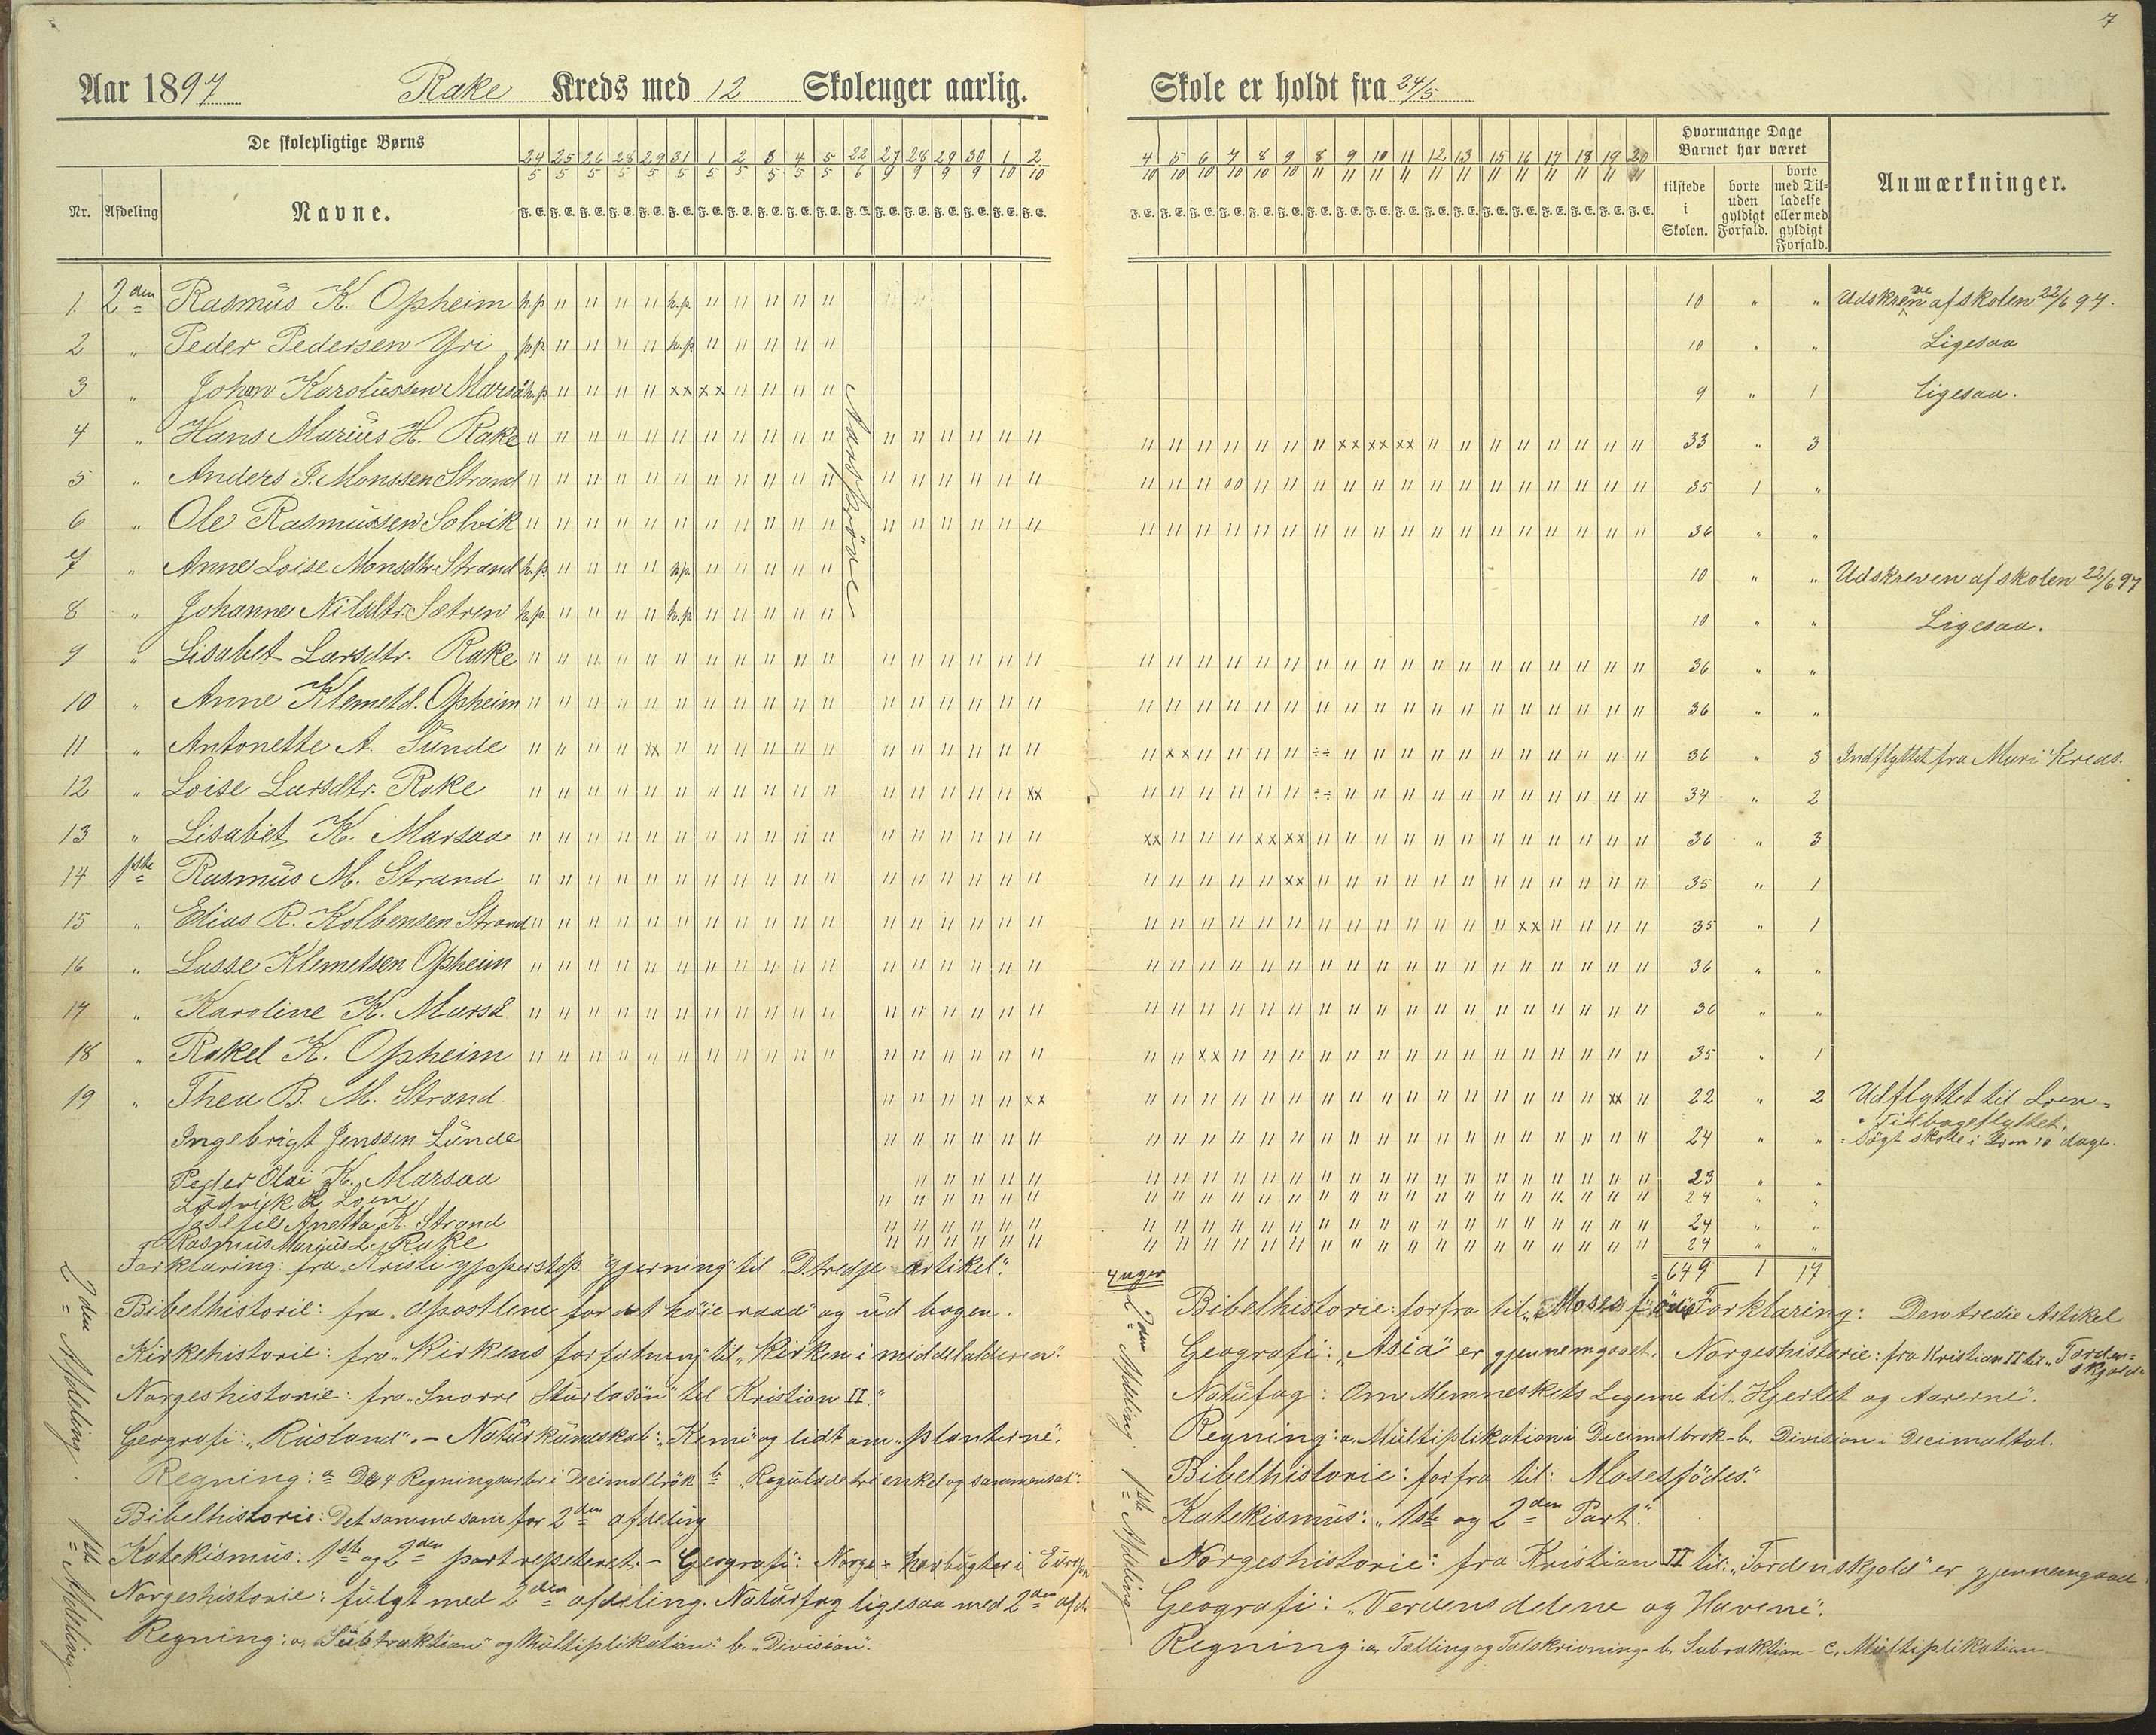 7
Aar 1897 Rake Kreds med 12 Skoleuger aarlig.
Skole er holdt fra 24/5
De skolepligtige Børns
Nr. Afdeling Navne.
24/5 25/5 26/5 28/5 29/5 31/5 1/5 2/5 3/5 4/5 5/5 22/6 27/9 28/9 29/9 30/9 1/10 2/10
F. E. F. E. F. E. F. E. F. E. F. E. F. E. F. E. F. E. F. E. F. E. F. E. F. E. F. E. F. E. F. E. F. E. F. E.
4/10 5/10 6/10 7/10 8/10 9/10 8/11 9/11 10/11 11/11 12/11 13/11 15/11 16/11 17/11 18/11 19/11 20/11
F. E. F. E. F. E. F. E. F. E. F. E. F. E. F. E. F. E. F. E. F. E. F. E. F. E. F. E. F. E. F. E. F. E. F. E.
Hvormange Dage Barnet har været
tilstede i Skolen.
borte uden gyldigt Forfald.
borte med Tilladelse eller med gyldigt Forfald.
Anmærkninger.
1. 2den Rasmus K. Opheim h.p. " " " " h.p. " " " " " 10 " " Udskreven af skolen 22/6 97.
2 " Peder Pedersen Yri h.p. " " " " h.p. " " " " " 10 " " Ligesaa
3 " Johan Karolussen Marså h.p. " " " " xx xx " " " " 9 " 1 Ligesaa.
4 " Hans Marius H. Rake 33 " 3
5 " Anders J. Monssen Strand 35 1 "
6 " Ole Rasmussen Solvik 36 " "
7 " Anne Loise Monsdtr. Strand h.p. " " " " h.p. " " " " " 10 " " Udskreven af skolen 22/6 97
8 " Johanne Nilsdtr. Sætren h.p. " " " " h.p. " " " " " 10 " " Ligesaa.
9 " Lisabet Larsdtr. Rake 36 " "
10 " Anne Klemetd. Opheim 36 " "
11 " Antonette A. Tunde 36 " 3 Indflyttet fra Muri Kreds.
12 " Loise Larsdtr. Rake 34 " 2
13 " Lisabet K. Marsaa 36 " 3
14 1ste Rasmus M. Strand 35 " 1
15 " Elias R. Kolbensen Strand 35 " 1
16 " Lasse Klemetsen Opheim 36 " "
17 " Karoline K. Marså 36 " "
18 " Rakel K. Opheim 35 " 1
19 " Thea B. M. Strand 22 " 2 Udflyttet til Loen
Tilbageflyttet.
Ingebrigt Jenssen Lunde 24 " " Søgt skole i Loen 10 dage.
Peder Olai K. Marsaa 23 " "
Lodvik R. Loen 24 " "
Anetta K. Strand 24 " "
Rasmus Marius L. Rake 24 " "
= 649 1 17
Vaarprøve
2den Afdeling.
Forklaring: fra "Kristi ypperstepr. gjerning" til "D. tredje artikel".
Bibelhistorie: fra "Apostlene for det høie raad" og ud bogen.
Kirkehistorie: fra "Kirkens forfatning" til "Kirken i middelalderen".
Norgeshistorie: fra "Snorre Sturlasön" til Kristian II."
Geografi: "Rusland". – Naturkundskab: "Kemi" og lidt om "planterne".
Regning: a De 4 Regningsarter i Decimalbrök b "Reguladetri enkel og sammensat".
1ste Afdeling.
Bibelhistorie: Det samme som for 2den afdeling
Katekismus: 1ste og 2den part repeteret. – Geografi: Norge + Havbugter i Europa
Norgeshistorie: fulgt med 2den afdeling. Naturfag ligesaa med 2den afd.
Regning: a. "Subtraktion" og Multiplikation." b. "Division".
4 uger
2den Afdeling
Bibelhistorie: forfra til "Moses fødes" Forklaring: Den tredie Artikel
Geografi: "Asia" er gjennemgaaet. Norgeshistorie: fra Kristian II til "Tordenskjold"
Naturfag: Om Menneskets Legeme til "Hjertet og Aarerne".
Regning: a. Multiplikation i Decimalbrøk – b. Division i Decimaltal.
1ste Afdeling
Bibelhistorie: forfra til: Moses fødes".
Katekismus: "1ste og 2den Part".
Norgeshistorie: fra Kristian II til: "Tordenskjold" er gjennemgaaet
Geografi: "Verdensdelene og Havene".
Regning: a. Tælling og Talskrivning – b. Subraktion – c. Multiplikation